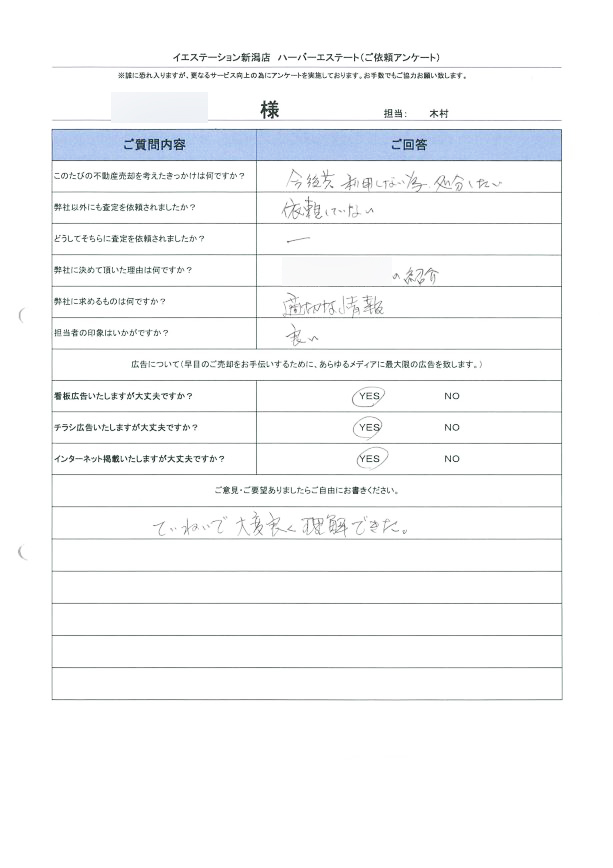 イエステーション新潟店　ハーバーエステート（ご依頼アンケート）
※誠に恐れ入りますが、更なるサービス向上の為にアンケートを実施しております。お手数でもご協力お願い致します。
様　担当：　木村
ご質問内容　ご回答
このたびの不動産売却を考えたきっかけは何ですか？　今後共 利用しない為、処分したい
弊社以外にも査定を依頼されましたか？　依頼していない
どうしてそちらに査定を依頼されましたか？　ー
弊社に決めて頂いた理由は何ですか？　の紹介
弊社に求めるものは何ですか？　適切な情報
担当者の印象はいかがですか？　良い
広告について（早目のご売却をお手伝いするために、あらゆるメディアに最大限の広告を致します。）
看板広告いたしますが大丈夫ですか？　YES　NO
チラシ広告いたしますが大丈夫ですか？　YES　NO
インターネット掲載いたしますが大丈夫ですか？　YES　NO
ご意見・ご要望ありましたらご自由にお書きください。
ていねいで大変良く理解できた。